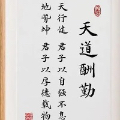 天道酬勤
天行健 君子以自强不息
地势坤 君子以厚德载物